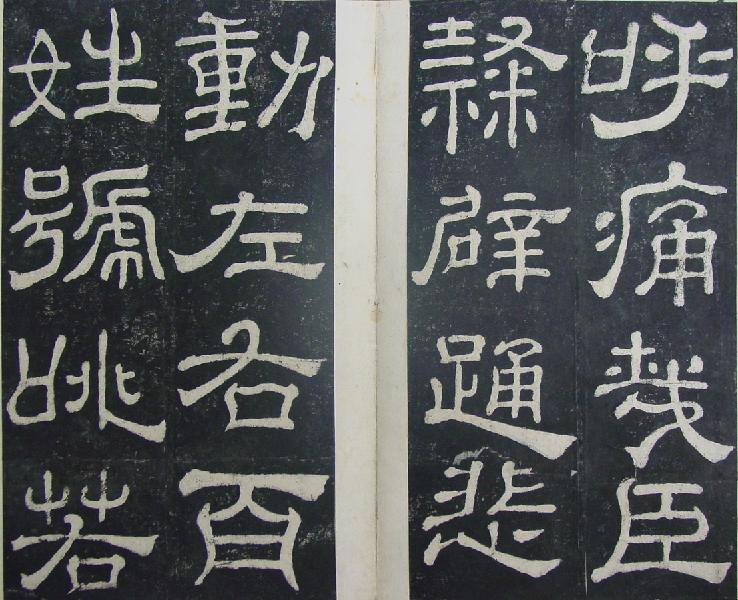 呼痛哉臣
隸辟踊悲
動左右百
姓號咷若